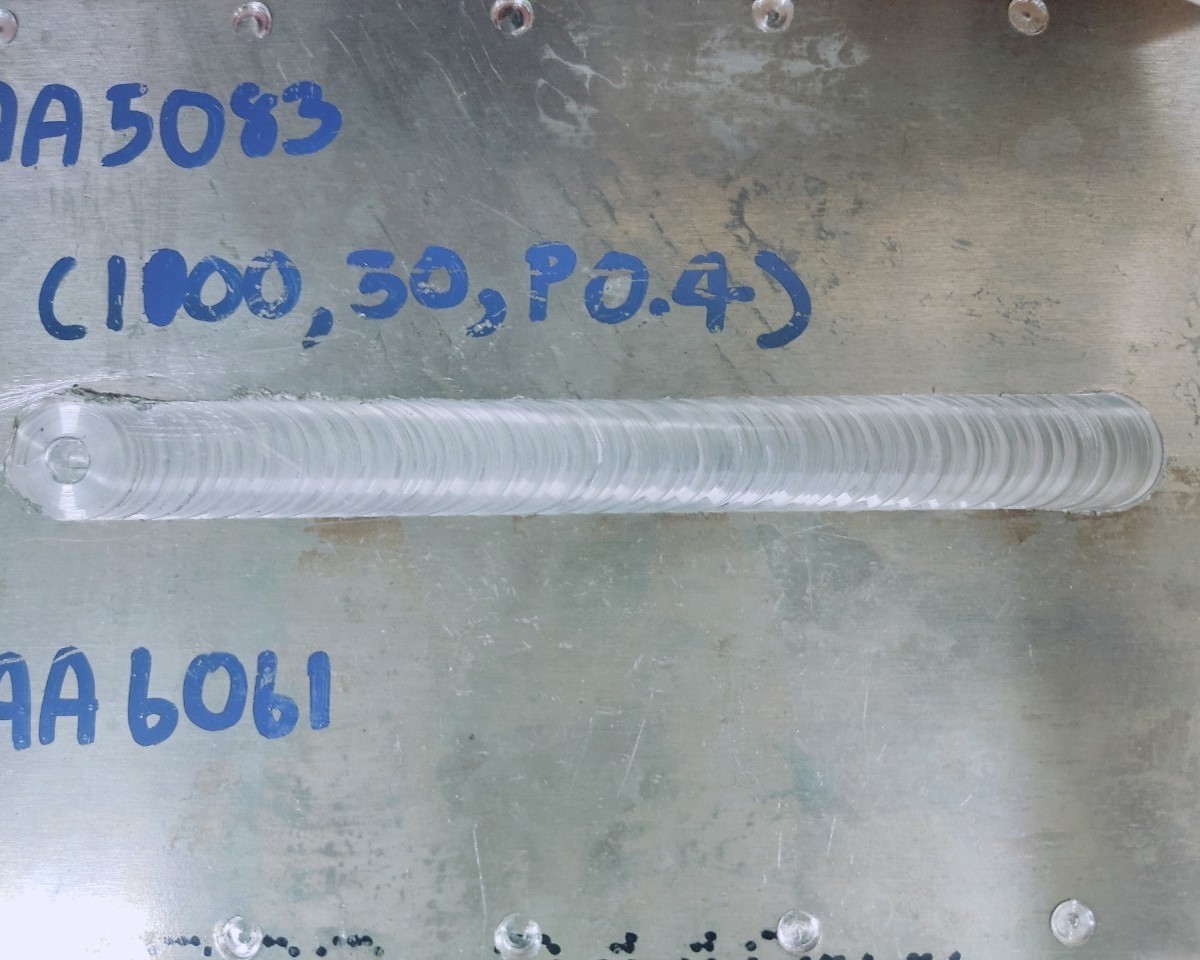 AA5083
(1000,30,P0.4)
AA6061